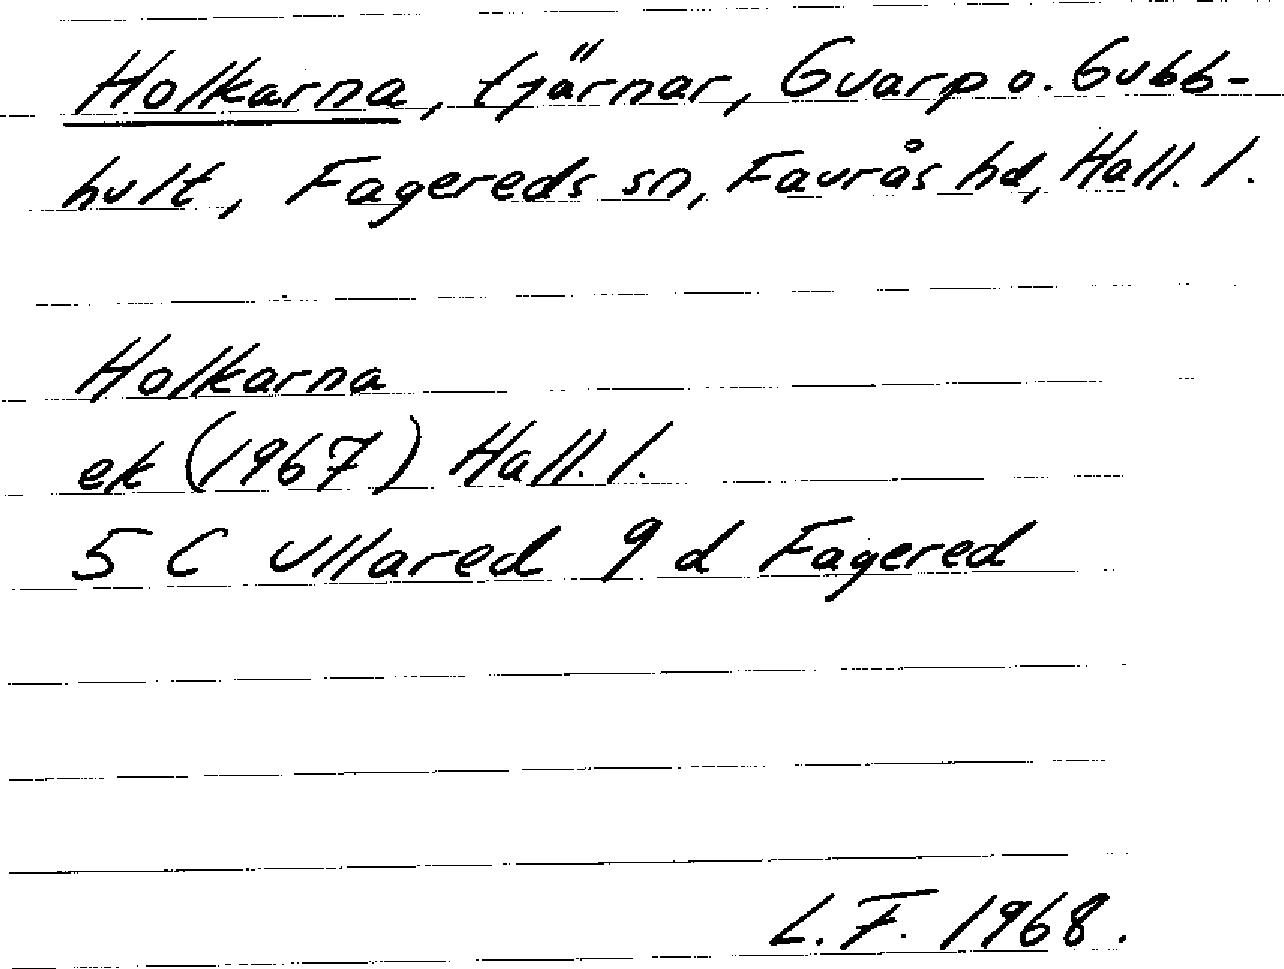 Holkarna, tjärnar, Gvarp o. Gubb-
hult, Fagereds sn, Faurås hd, Hall. l.
Holkarna
ek (1967) Hall. l.
5 C Ullared 9 d Fagered
L. F. 1968.